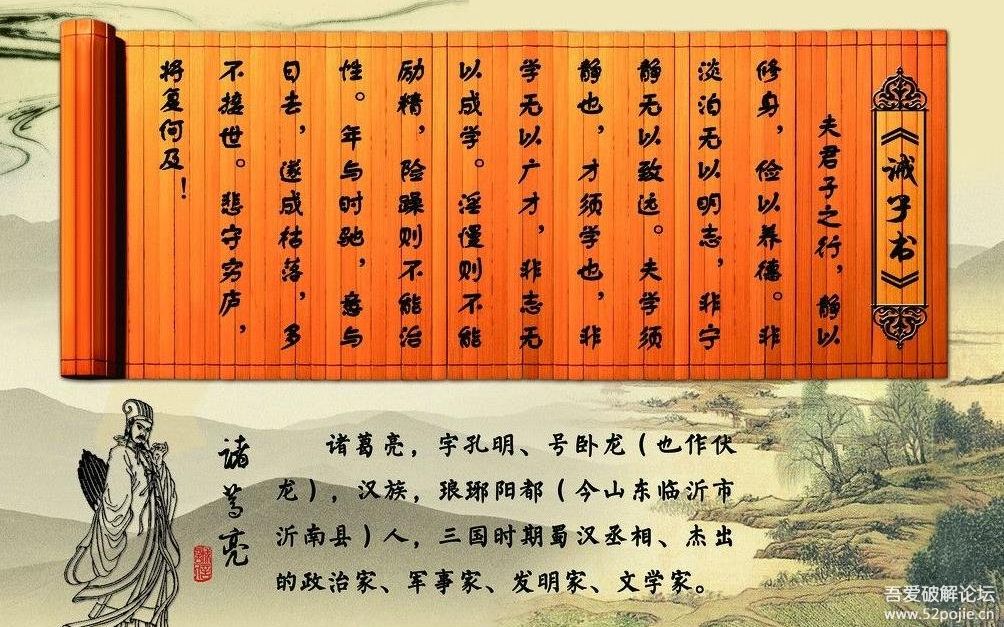 《诫子书》
夫君子之行，静以
修身，俭以养德。非
淡泊无以明志，非宁
静无以致远。夫学须
静也，才须学也，非
学无以广才，非志无
以成学。淫慢则不能
励精，险躁则不能治
性。年与时驰，意与
日去，遂成枯落，多
不接世。悲守穷庐，
将复何及！
诸葛亮
诸葛亮，字孔明、号卧龙（也作伏
龙），汉族，琅琊阳都（今山东临沂市
沂南县）人，三国时期蜀汉丞相、杰出
的政治家、军事家、发明家、文学家。
吾爱破解论坛
www.52pojie.cn